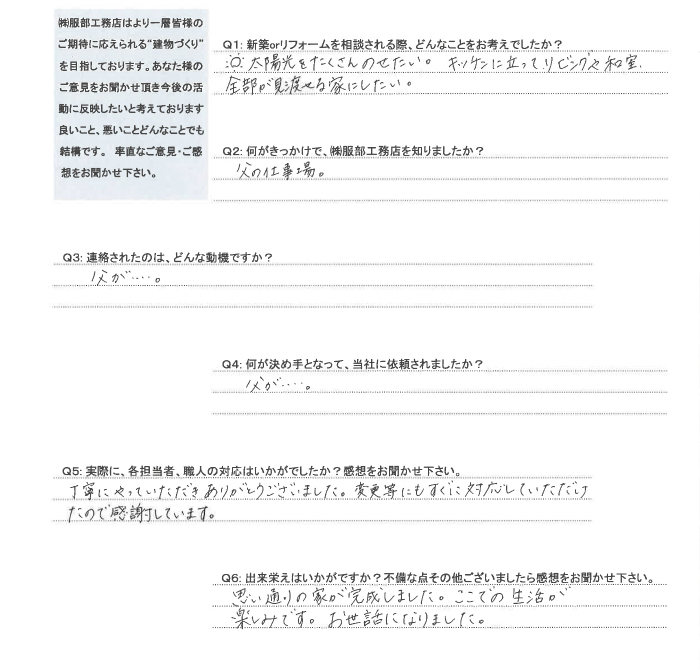 ㈱服部工務店はより一層皆様の
ご期待に応えられる“建物づくり”
を目指しております。あなた様の
ご意見をお聞かせ頂き今後の活
動に反映したいと考えております
良いこと、悪いことどんなことでも
結構です。 率直なご意見・ご感
想をお聞かせ下さい。
Q1: 新築orリフォームを相談される際、どんなことをお考えでしたか?
太陽光をたくさんのせたい。 キッチンに立って、リビングや和室、
全部が見渡せる家にしたい。
Q2: 何がきっかけで、㈱服部工務店を知りましたか?
父の仕事場。
Q3: 連絡されたのは、どんな動機ですか?
父が‥‥。
Q4: 何が決め手となって、当社に依頼されましたか?
父が‥‥。
Q5: 実際に、各担当者、職人の対応はいかがでしたか?感想をお聞かせ下さい。
丁寧にやっていただきありがとうございました。変更等にもすぐに対応していただけ
たので感謝しています。
Q6: 出来栄えはいかがですか?不備な点その他ございましたら感想をお聞かせ下さい。
思い通りの家が完成しました。ここでの生活が
楽しみです。お世話になりました。